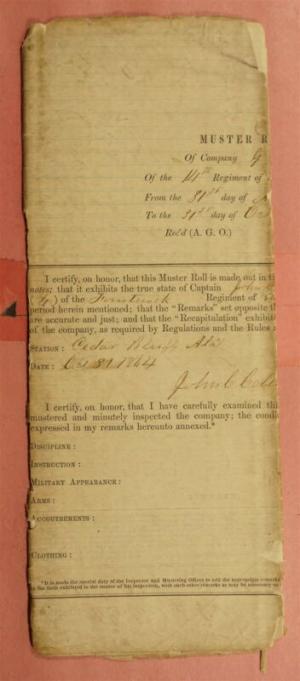 MUSTER R
Of Company G
Of the 14th Regiment of
From the 31st day of A
To the 31st day of Oct
Rec'd (A. G. O.)
I certify, on honor, that this Muster Roll is made out in t
notes; that it exhibits the true state of Captain John
(G) of the Regiment of
period herein mentioned; that the "Remarks" set opposite t
are accurate and just; and that the "Recapitulation" exhibit
of the company, as required by Regulations and the Rules a
STATION: Cedar Bluff Ala
DATE: Oct 31 1864
John C
I certify, on honor, that I have carefully examined thi
mustered and minutely inspected the company; the condi
expressed in my remarks hereunto annexed.*
DISCIPLINE:
INSTRUCTION:
MILITARY APPEARANCE:
ARMS:
ACCOUTREMENTS:
CLOTHING:
*It is made the special duty of the Inspector and Mustering Officer to add the appropriate remarks